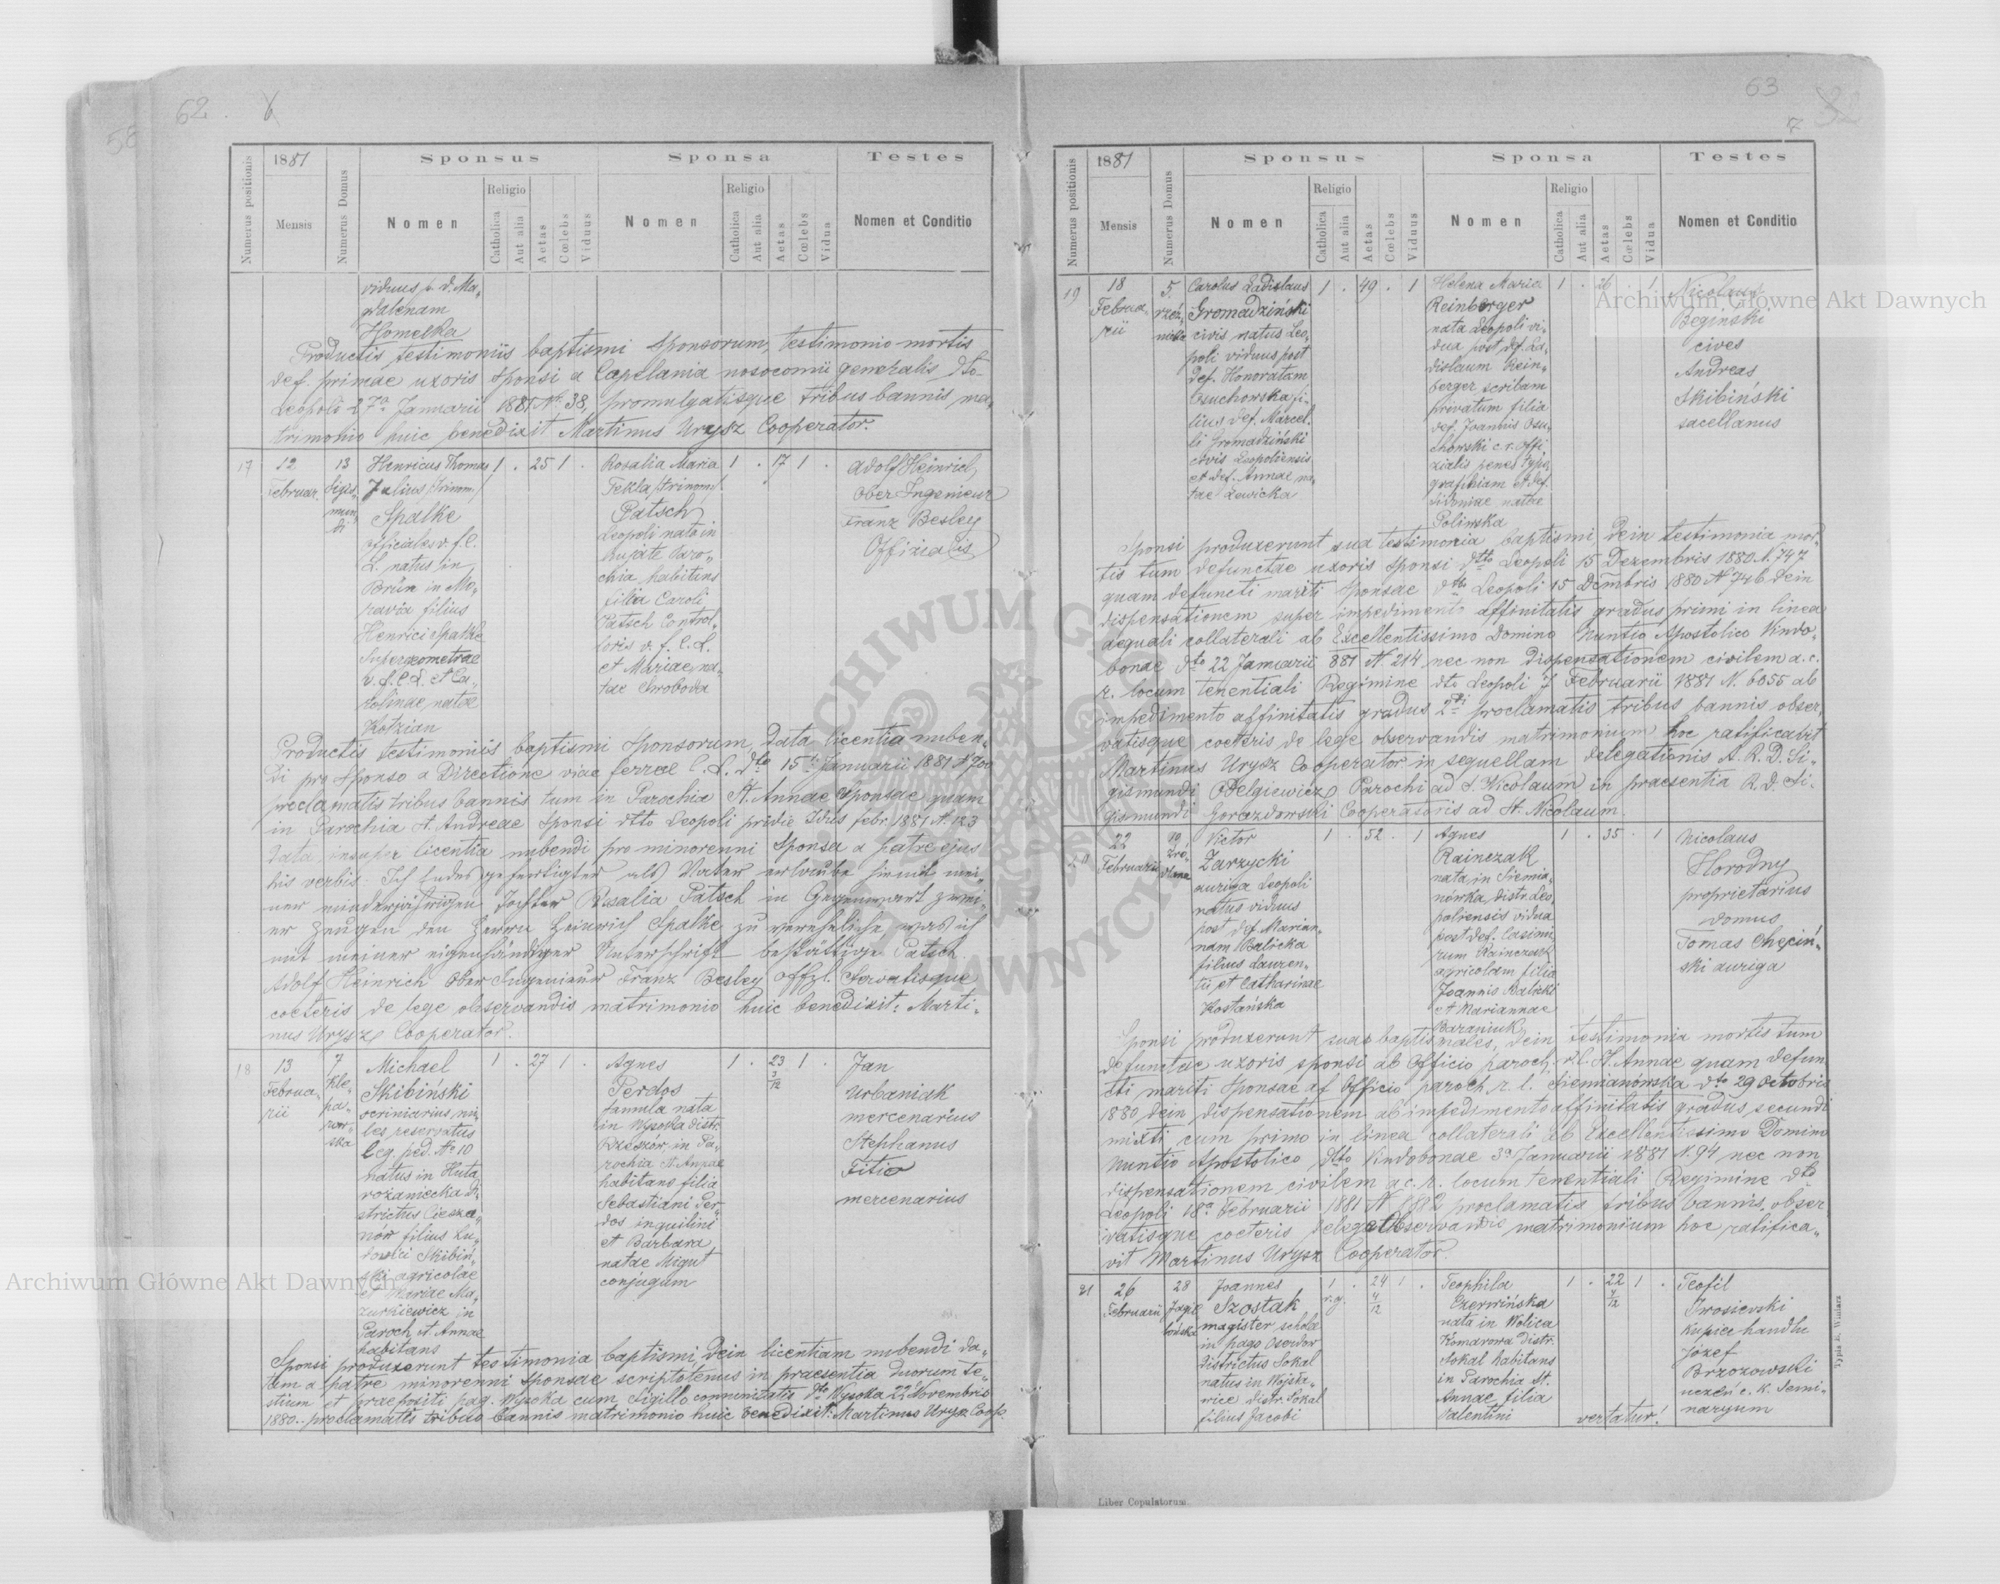 62. 6
58
1881
Sponsus
Sponsa
Testes
Numerus positionis
Mensis
Numerus Domus
Nomen
Religio
Catholica
Aut alia
Aetas
Cœlebs
Viduus
Nomen
Religio
Catholica
Aut alia
Aetas
Cœlebs
Vidua
Nomen et Conditio
viduus p. d. Ma-
gdalenam
Homelka
Productis testimoniis baptismi Sponsorum, testimonio mortis
def. primae uxoris sponsi a Capelania nosocomii generalis dto
Leopoli 27a Januarii 1881 No 38, promulgatisque tribus bannis, ma-
trimonio huic benedixit Martinus Urysz Cooperator.
17
12
Februar.
13
Sigis-
mun-
di
Henricus Thomas
Julius /trinom./
Spalke
officiales v. f. C.
L. natus in
Brün in Mo-
ravia filius
Henrici Spalke
Supergeometrae
v. f. C. L. et Ca-
rolinae natae
Kotzian
1 . 25 1 .
Rosalia Maria
Tekla /trinom/.
Patsch
Leopoli nata in
hujate Paro-
chia habitans
filia Caroli
Patsch Control-
loris v. f. C. L.
et Mariae, na-
tae Swoboda
1 . 17 1 .
Adolf Heinrich,
Ober Ingenieur
Franz Besley
Offizialis
Productis testimoniis baptismi Sponsorum, data licentia nuben-
di pro Sponso a Directione viae ferreae C. L. dto 15ti Januarii 1881 N 700
proclamatis tribus bannis tum in Parochia St. Annae Sponsae quam
in Parochia St. Andreae Sponsi dtto Leopoli pridie Idus febr. 1881 N. 123
data insuper licentia nubendi pro minorenni Sponsa a patre ejus
his verbis: Ich Endesgefertigter als Vater erlaube hiemit mei-
ner minderjährigen Tochter Rosalia Patsch in Gegenwart zwei-
er Zeugen den Herrn Heinrich Spalke zu verehelichen was ich
mit meiner eigenhändiger Unterschrift bestättige Patsch.
Adolf Heinrich Ober Ingenieur Franz Besley Offzl. Servatisque
coeteris de lege observandis matrimonio huic benedixit: Marti-
nus Urysz Cooperator.
18
13
Februa-
rii
7
Kle-
pa-
row-
ska
Michael
Skibiński
scriniarius mi-
les reservatus
leg. ped. No 10
natus in Huta
rożaniecka di-
strictus Ciesza-
nów filius Lu-
dovici Skibiń-
ski agricolae
et Mariae Ma-
zurkiewicz in
Paroch. St. Annae
habitans
1 . 27 1 .
Agnes
Perdos
famula nata
in Wysoka distr.
Rzeszów, in Pa-
rochia St. Annae
habitans filia
Sebastiani Per-
dos inquilini
et Barbara
natae Migut
conjugum
1 . 23 3/12 1 .
Jan
Urbaniak
mercenarius
Stephanus
Fitio
mercenarius
Sponsi produxerunt testimonia baptismi, dein licentiam nubendi da-
tam a patre minorenni sponsae scriptotenus in praesentia duorum te-
stium et praepositi pag. Wysoka cum sigillo communitatis dto Wysoka 22 Novembris
1880. proclamatis tribus bannis matrimonio huic benedixit: Martinus Urysz Coop.
63
32
7
1881
Sponsus
Sponsa
Testes
Numerus positionis
Mensis
Numerus Domus
Nomen
Religio
Catholica
Aut alia
Aetas
Cœlebs
Viduus
Nomen
Religio
Catholica
Aut alia
Aetas
Cœlebs
Vidua
Nomen et Conditio
19
18
Februa-
rii
5.
rzeź-
nicka
Carolus Ladislaus
Gromadziński
civis natus Leo-
poli viduus post
def. Honoratam
Osuchowska fi-
lius def. Marcel-
li Gromadziński
civis Leopoliensis
et def. Annae, na-
tae Lewicka
1 . 49 . 1
Helena Maria
Reinberger
nata Leopoli vi-
dua post def. La-
dislaum Rein-
berger scribam
privatum filia
def. Joannis Osu-
chowski c. r. Offi-
zialis penes typo-
grafhiam et def.
Sidoniae natae
Polinska
1 . 26 . 1
Nicolaus
Begiński
cives
Andreas
Skibiński
sacellanus
Sponsi produxerunt sua testimonia baptismi, dein testimonia mor-
tis tum defunctae uxoris sponsi dtto Leopoli 15 Dezembris 1880. N. 747
quam defuncti mariti Sponsae dtto Leopoli 15 Dcembris 1880 No 746. dein
dispensationem super impedimento affinitatis gradus primi in linea
aequali collaterali ab Excellentissimo Domino Nuntio Apostolico Vindo-
bonae dto 22 Januarii 881 N. 214 nec non dispensationem civilem a. c.
r. locum tenentiali Regimine dto Leopoli 7 Februarii 1881 N. 6055 ab
impedimento affinitatis gradus 2di proclamatis tribus bannis obser-
vatisque coeteris de lege observandis matrimonium hoc ratificavit
Martinus Urysz Cooperator in sequellam delegationis A. R. D. Si-
gismundi Odelgiewicz Parochi ad S. Nicolaum in praesentia R. D. Si-
gismundi Gorazdowski Cooperatoris ad St. Nicolaum.
20
22
Februarii
19
Źró-
dlana
Victor
Zarzycki
auriga Leopoli
natus viduus
post def. Marian-
nam Balicka
filius Lauren-
tii et Catharinae
Kostańska
1 . 52 . 1
Agnes
Rainczak
nata in Siemia-
nówka, distr. Leo-
poliensis vidua
post def. Casimi-
rum Rainczak
agricolam filia
Joannis Balicki
et Mariannae
Baraniuk
1 . 35 . 1
Nicolaus
Horodny
proprietarius
domus
Tomas Chęciń-
ski auriga
Sponsi produxerunt suas baptismales, dein testimonia mortis tum
defunctae uxoris sponsi ab Officio paroch. r. l. St. Annae quam defun-
cti mariti Sponsae af Officio paroch. r. l. Siemianowska dto 29 Octobris
1880 dein dispensationem ab impedimento affinitatis gradus secundi
mixti cum primo in linea collaterali ab Excellentissimo Domino
Nuntio Apostolico dtto Vindobonae 3a Januarii 1881 N. 94 nec non
dispensationem civilem a c. r. locum tenentiali Regimine dto
Leopoli 18a Februarii 1881 N 1882 proclamatis tribus bannis, obser-
vatisque coeteris de lege observandis matrimonium hoc ratifica-
vit Martinus Urysz Cooperator.
21
26
Februarii
28
Jagie
lońska
Joannes
Szostak
magister schola
in pago Oserdow
districtus Sokal
natus in Wojsła-
wice distr. Sokal
filius Jacobi
1 r. g. . 24 4/12 1 .
Teophila
Czerwińska
nata in Wolica
Komarowa distr.
Sokal habitans
in Parochia St.
Annae, filia
Valentini
1 . 22 7/12 1 .
vertatur!
Teofil
Iwosievski
kupiec handlu
Józef
Brzozowski
uczeń c. k. Semi-
naryum
Typis E. Winiarz
Liber Copulatorum.
Archiwum Główne Akt Dawnych
Archiwum Główne Akt Dawnych
ARCHIWUM GŁÓWNE AKT DAWNYCH